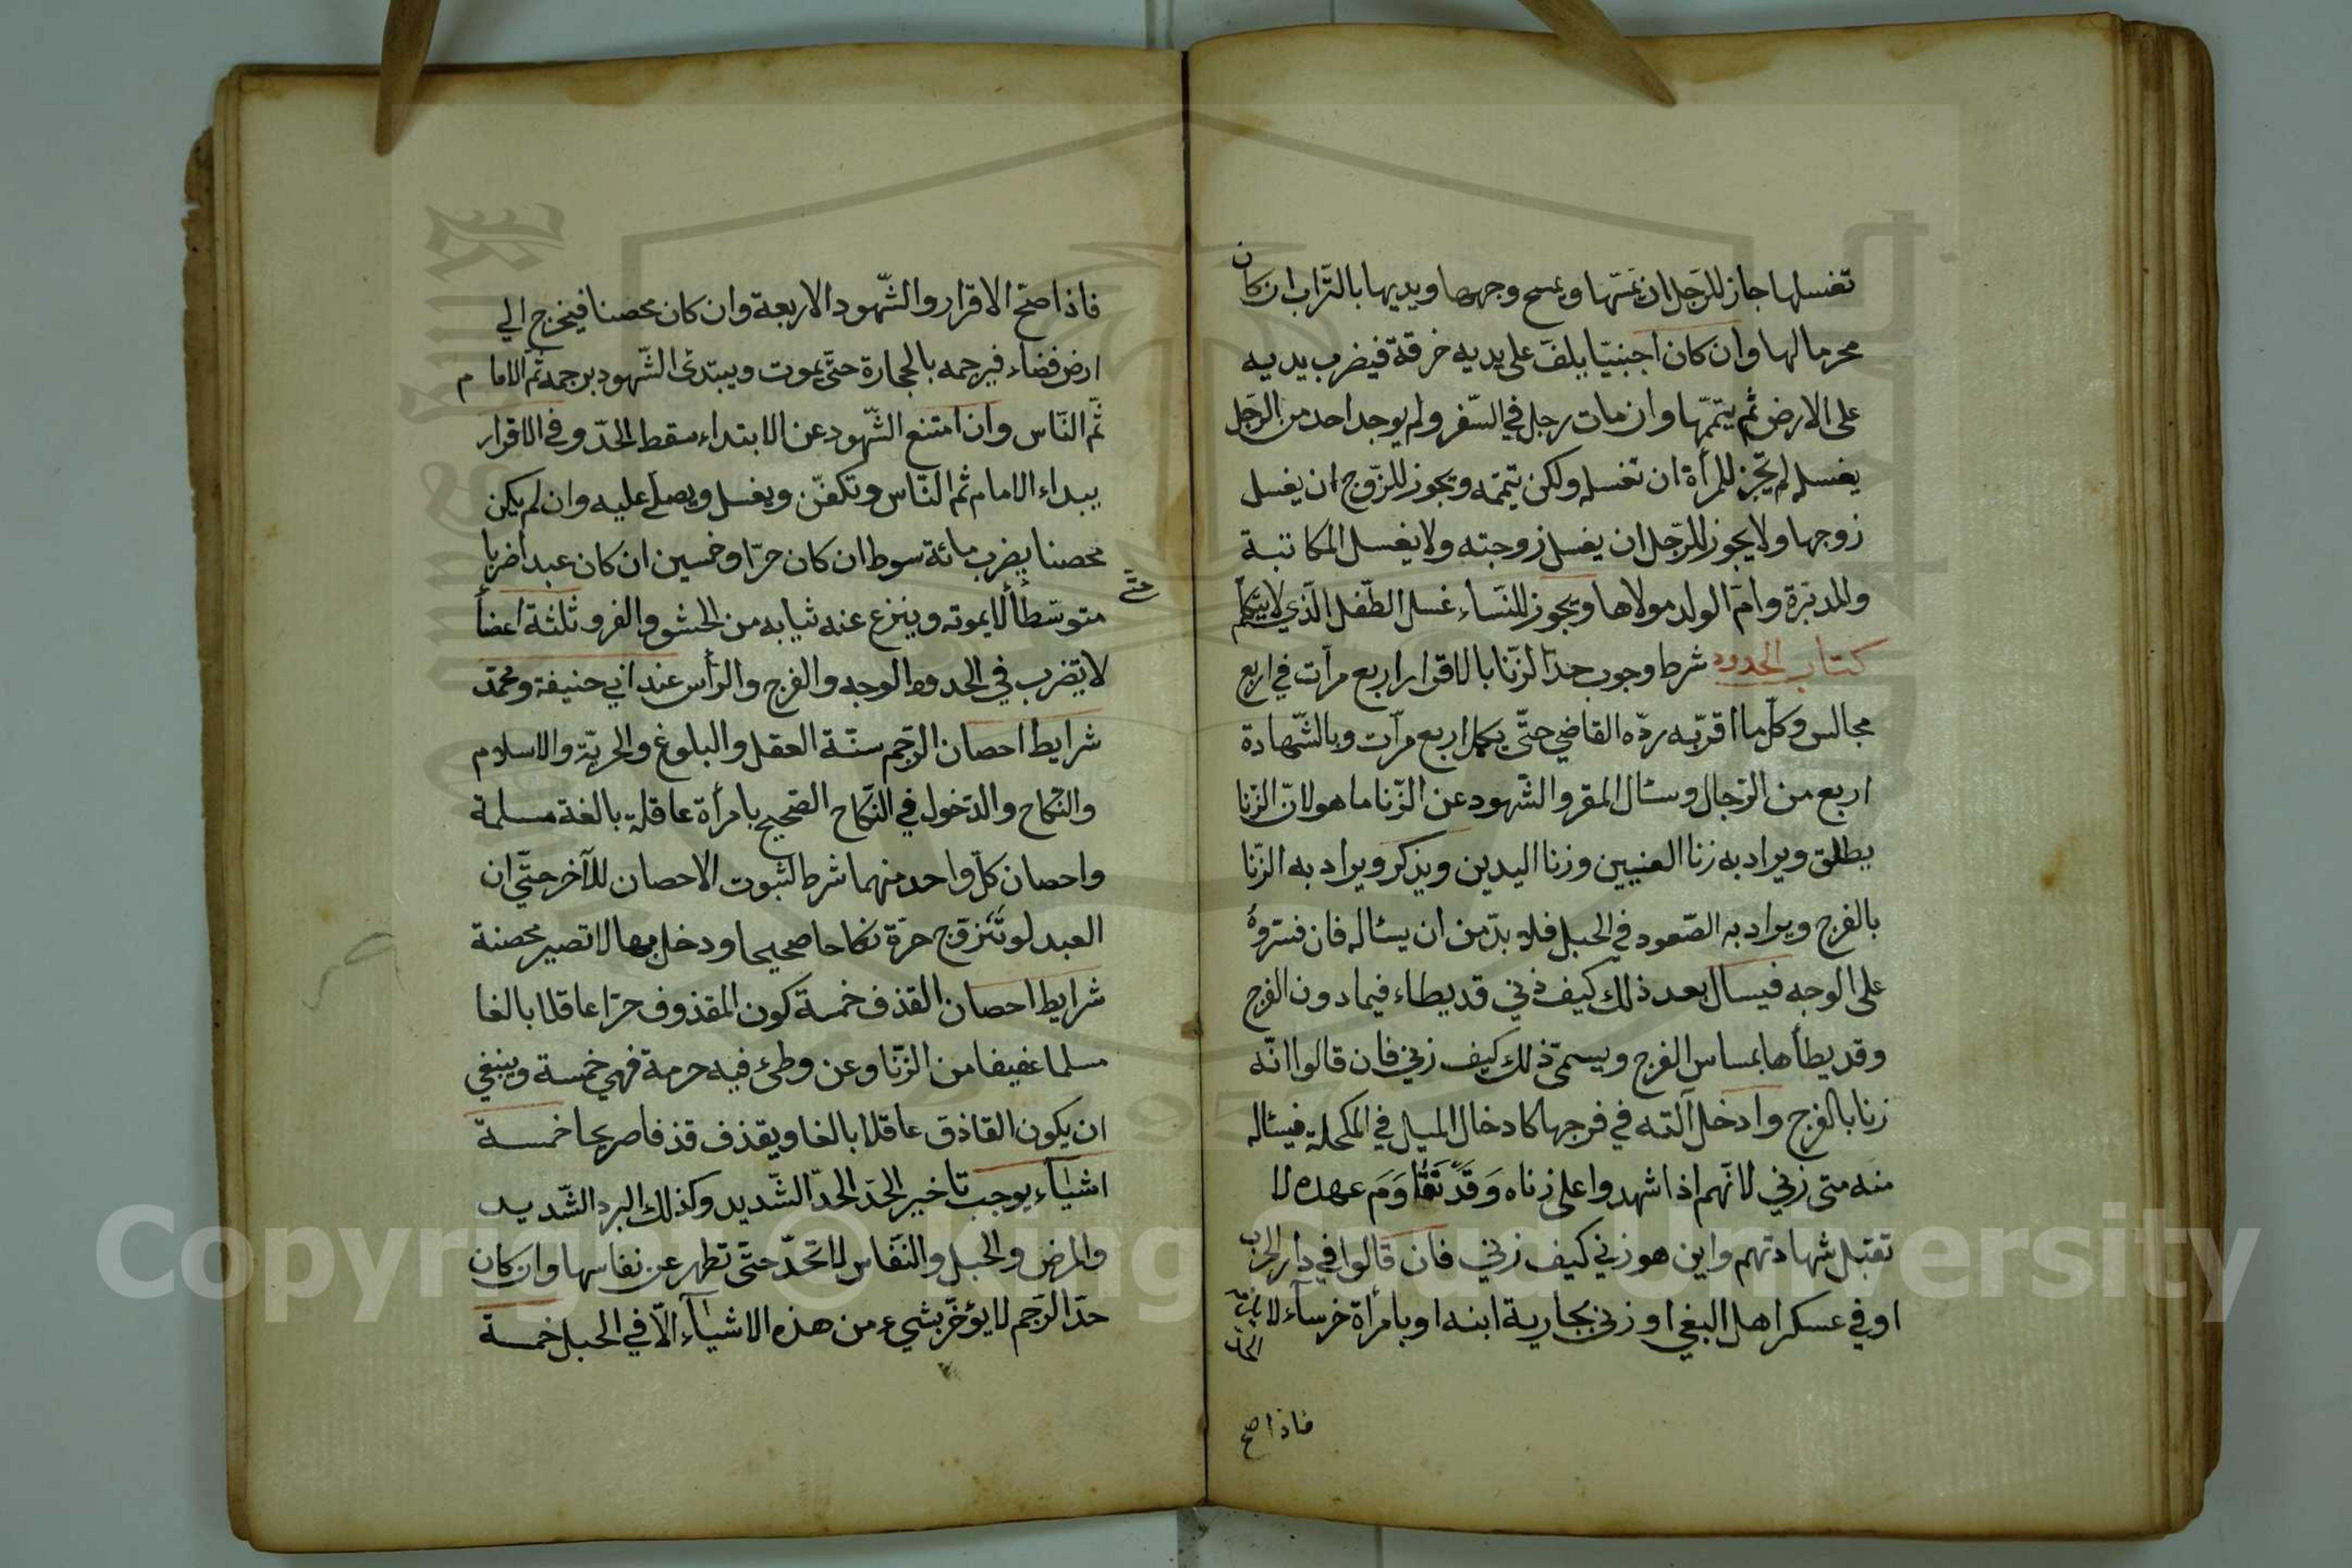 تغسلها جاز للرّجل ان يمسّها ويمسح وجهها ويديها بالتّراب ان كان
محرما لها وان كان اجنبيّا يلفّ على يديه خرقة فيضرب يديه
على الارض ثم يتمّمها وان مات رجل في السّفر ولم يوجد احد من الرّجل
يغسله لم تجز للمرأة ان تغسله ولكن تيمّمه ويجوز للزّوج ان يغسل
زوجها ولا يجوز للرّجل ان يغسل زوجته ولا يغسل المكاتبة
والمدبّرة وامّ الولد مولاها ويجوز للنّساء غسل الطّفل الّذي لا يتكلّم
كتاب الحدود شرط وجوب حدّ الزّنا بالاقرار اربع مرّات في اربع
مجالس وكلّما اقرّ به ردّه القاضي حتّى يكمل اربع مرّات وبالشّهادة
اربع من الرّجال وسئال المقر والشّهود عن الزّنا ما هو لانّ الزّنا
يطلق ويراد به زنا العنيين وزنا اليدين ويذكر ويراد به الزّنا
بالفرج ويراد به الصّعود في الحبل فلا بدّ من ان يسئاله فان فسّروه
على الوجه فيسال بعد ذلك كيف زني قد يطاء فيما دون الفرج
وقد يطأها بمساس الفرج ويسمّى ذلك كيف زني فان قالوا انّه
زنا بالفرج وادخل آلته في فرجها كادخال الميل في المكحلة فيسئاله
منه متى زني لانّهم اذا شهدوا على زناه وقد تقاوم عهده لا
تقبل شهادتهم واين هو زني كيف زني فان قالوا في دار الحرب
او في عسكر اهل البغي او زني بجارية ابنه او بامرأة خرسآء لا يجب
الحدّ
فاذا صح
فاذا صحّ الاقرار والشّهود الاربعة وان كان محصنا فيخرج الي
ارض فضاء فيرجمه بالحجارة حتّى يموت ويبتدئ الشّهود برجمه ثمّ الامام
ثمّ النّاس وان امتنع الشّهود عن الابتداء سقط الحدّ وفي الاقرار
يبداء الامام ثم النّاس وتكفّن ويغسل ويصلّى عليه وان لم يكن
محصنا يضرب مائة سوط ان كان حرّا وخمسين ان كان عبدا ضربا
حتّى
متوسّطا لا يموته وينزع عنه ثيابه من الحشو والفرو ثلثة اعضاً
لا يضرب في الحدود الوجه والفرج والرّأس عند ابي حنيفة ومحمّد
شرايط احصان الرّجم ستّة العقل والبلوغ والحريّة والاسلام
والنّكاح والدّخول في النّكاح الصّحيح بامرأة عاقلة بالغة مسلمة
واحصان كلّ واحد منهما شرط لثبوت الاحصان للآخر حتّى ان
العبد لو تزوّج حرّة نكاحا صحيحا ودخل بها لا تصير محصنة
شرايط احصان القذف خمسة كون المقذوف حرّا عاقلا بالغا
مسلما عفيفا من الزّنا وعن وطئ فيه حرمة فهي خمسة وينبغي
ان يكون القاذق عاقلا بالغا ويقذف قذفا صريحا خمسة
اشيآء يوجب تاخير الحدّ الحدّ الشّديد وكذلك البرد الشّديد
والمرض والحبل والنّفاس لا تحدّ حتّى تطهر عن نفاسها وان كان
حدّ الرّجم لا يؤخّر بشيء من هذه الاشيآء الّا في الحبل خمسة
Copyright © King Saud University